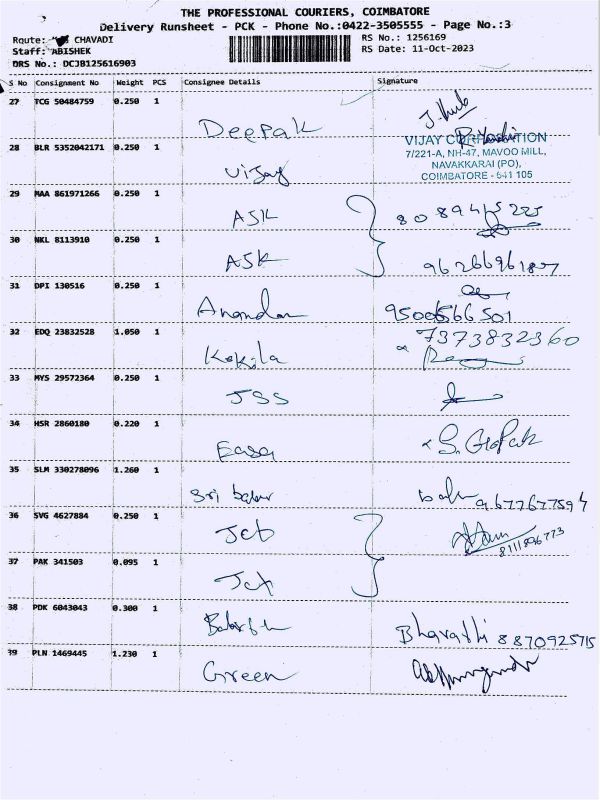 THE PROFESSIONAL COURIERS, COIMBATORE
Delivery Runsheet - PCK - Phone No.:0422-3505555 - Page No.:3
Route: CHAVADI
RS No.: 1256169
Staff: ABISHEK
RS Date: 11-Oct-2023
DRS No.: DCJB125616903
S No Consignment No Weight PCS Consignee Details Signature
27 TCG 50484759 0.250 1
Deepak
28 BLR 5352042171 0.250 1
VIJAY CORPORATION
7/221-A, NH-47, MAVOO MILL,
NAVAKKARAI (PO),
COIMBATORE - 641 105
Vijay
29 MAA 861971266 0.250 1
ASK
30 NKL 8113910 0.250 1
ASK
31 DPI 130516 0.250 1
Anandan 9500566501
32 EDQ 23832528 1.050 1
7373832360
Kokila
33 MYS 29572364 0.250 1
JSS
34 HSR 2860180 0.220 1
35 SLM 330278096 1.260 1
Sri babu 9677677594
36 SVG 4627884 0.250 1
Jet
8111896773
37 PAK 341503 0.095 1
Jet
38 PDK 6043043 0.300 1
Bharathi 8870925715
39 PLN 1469445 1.230 1
Green